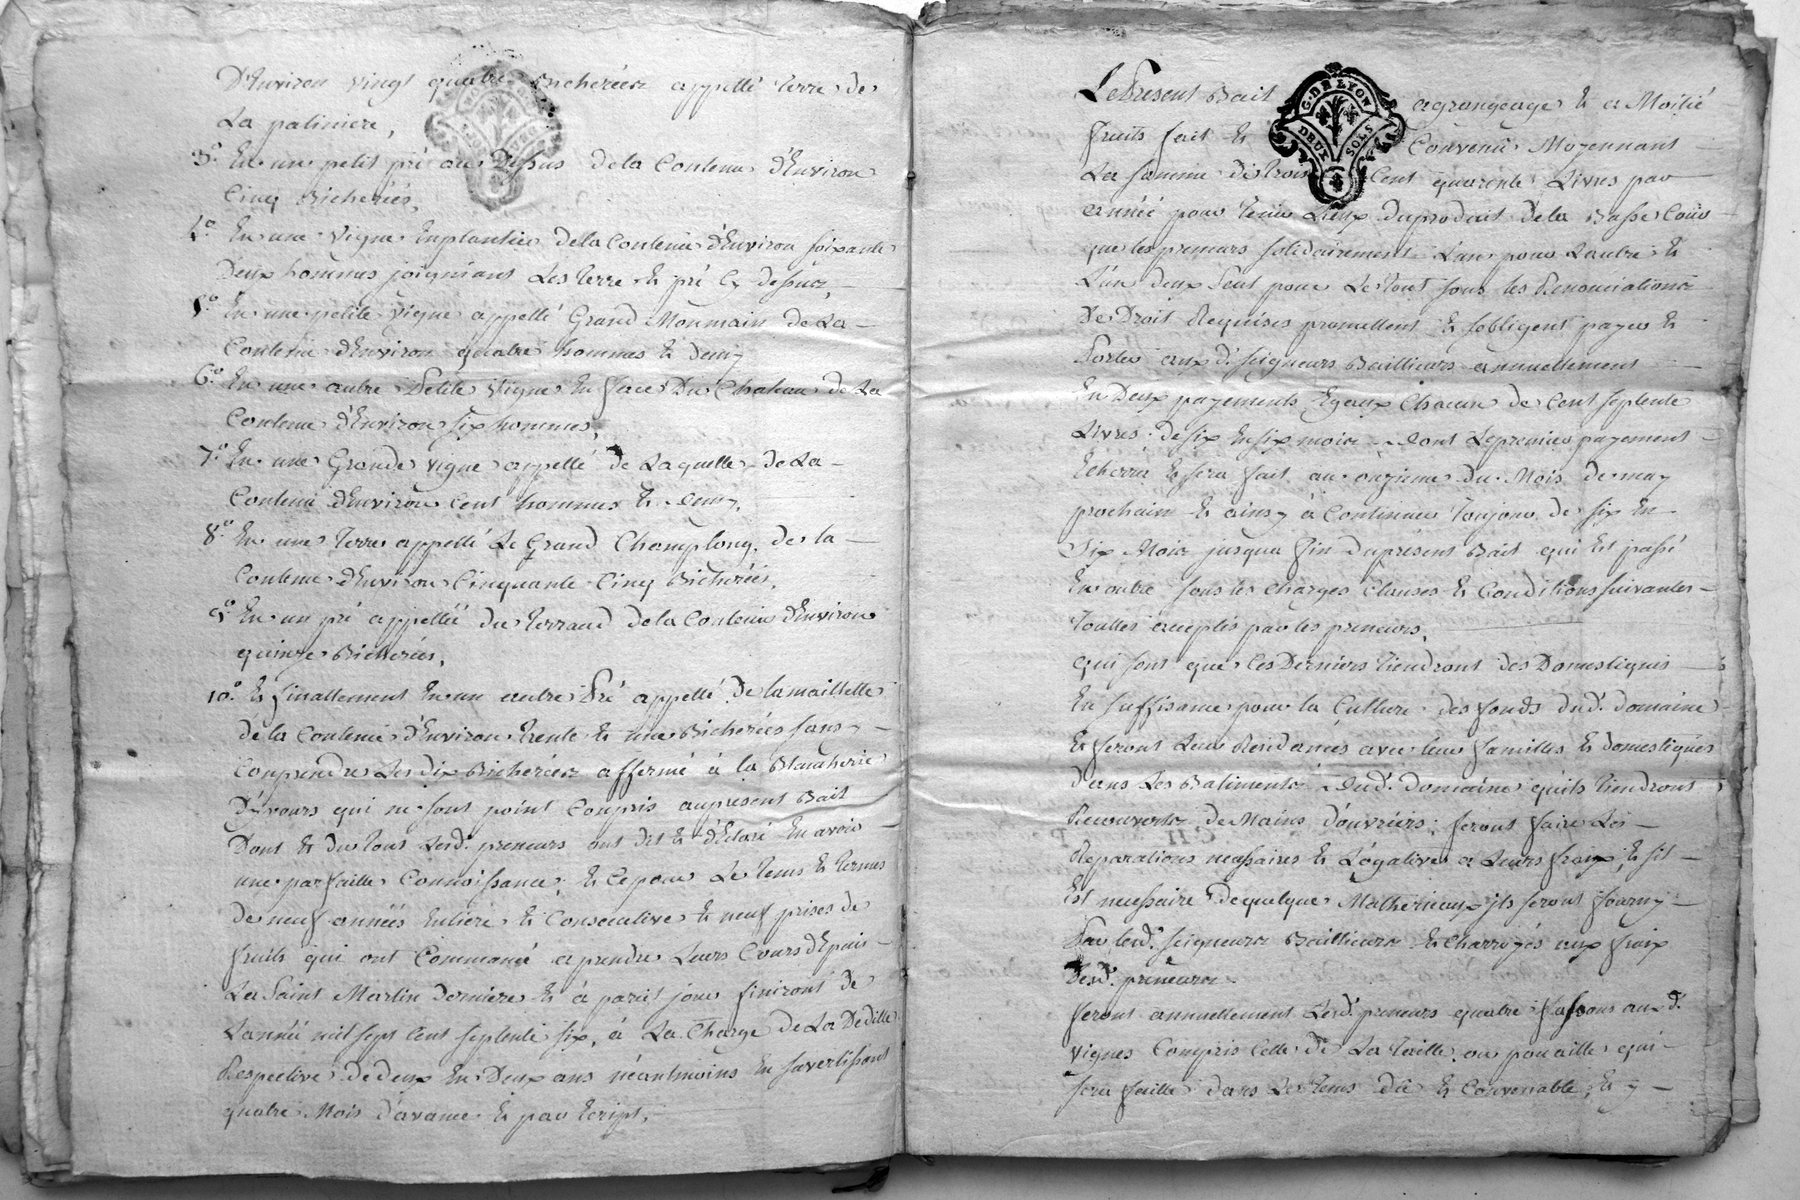 D'Environ vingt quatre Bicherées appellé terre de
La paliniere,
3.° En un petit pré au Dessus de la Contenue d'Environ
Cinq Bicherées,
4.° En une vigne Emplantée de la Contenue d'Environ soixante
Deux hommes joignant Les terre et pré Cy dessus,
5.° En une petite vigne appellé Grand Monmain de La
Contenue d'Environ quatre hommes et demy
6.° En une autre Petite Vigne En face Du Chateau de La
Contenue d'Environ six hommes,
7.° En une Grande vigne appellé de Laquelle de La
Contenue d'Environ Cent hommes et demy,
8.° En une Terre appellé Le Grand Champlong, de la
Contenue d'Environ Cinquante Cinq Bicherées,
9.° En un pré appellé du terraud de la Contenue d'Environ
quinze Bicherées,
10.° Et finallement En un autre Pré appellé De la maillette
de la Contenue d'Environ trente et une Bicherées sans
Conprendre Les dix Bicherées affermé à la Blancherie
D'yvours qui ne sont point Conpris aupresent Bail
Dont et du tout Lesd. preneurs ont dit et d'Eclaré En avoir
une parfaitte Connoissance; et Ce pour Le tems et termes
De neuf années Entiere et Consecutive et neuf prises de
fruits qui ont Commancé a prendre Leurs Cours d'Epuis
La Saint Martin derniere et à pareil jour finiront de
L'année mil sept Cent septente six, à La Charge de La Deditte
Respective de deux En Deux ans néantmoins En s'avertissant
quatre Mois d'avance et par Ecript,
Le Present Bail agrangeage et a Moitié
G. DE LYON
DEUX SOLS
fruits fait et Convenu Moyennant
La somme de trois Cent quarente Livres par
année pour tenir Lieux du produit de la Basse Cour
que les preneurs solidairement L'un pour L'autre et
L'un deux seul pour Le tout sous les Renonciations
De Droit Requises promettent et s'obligent payer et
Porter aux d. seigneurs Baillieurs annuellement
En Deux payements Egaux Chacun de Cent septente
Livres de six En six mois dont Le premier payement
Echerra et sera fait au onzieme du Mois de may
prochain et ainsy à Continuer Toujour de six En
Six Mois jusqua fin dupresent Bail qui Est passé
En outre sous les Charges Clauses et Conditions suivantes
Touttes acceptés par les preneurs,
qui sont que Ces Derniers tiendront des Domestiques
En suffisame pour la Culture des fonds dud. domaine
et feront Leur Residances avec leur familles et domestiques
dans Les Batiments dud. domaine qu'ils tiendront
Recouverts de Mains d'ouvriers; feront faire Les
Reparations necessaires et Légative a Leurs fraix, et s'il
Est necessaire de quelque Mathereaux ils seront fourny
Par lesd. Seigneurs Baillieurs et charroyés aux fraix
Desd. preneurs
feront annuellement Lesd. preneurs quatre fassons aux d.
vignes Compris Celle de La taille ou pouaille qui
sera faitte dans Le tems dû et Convenable, Et y